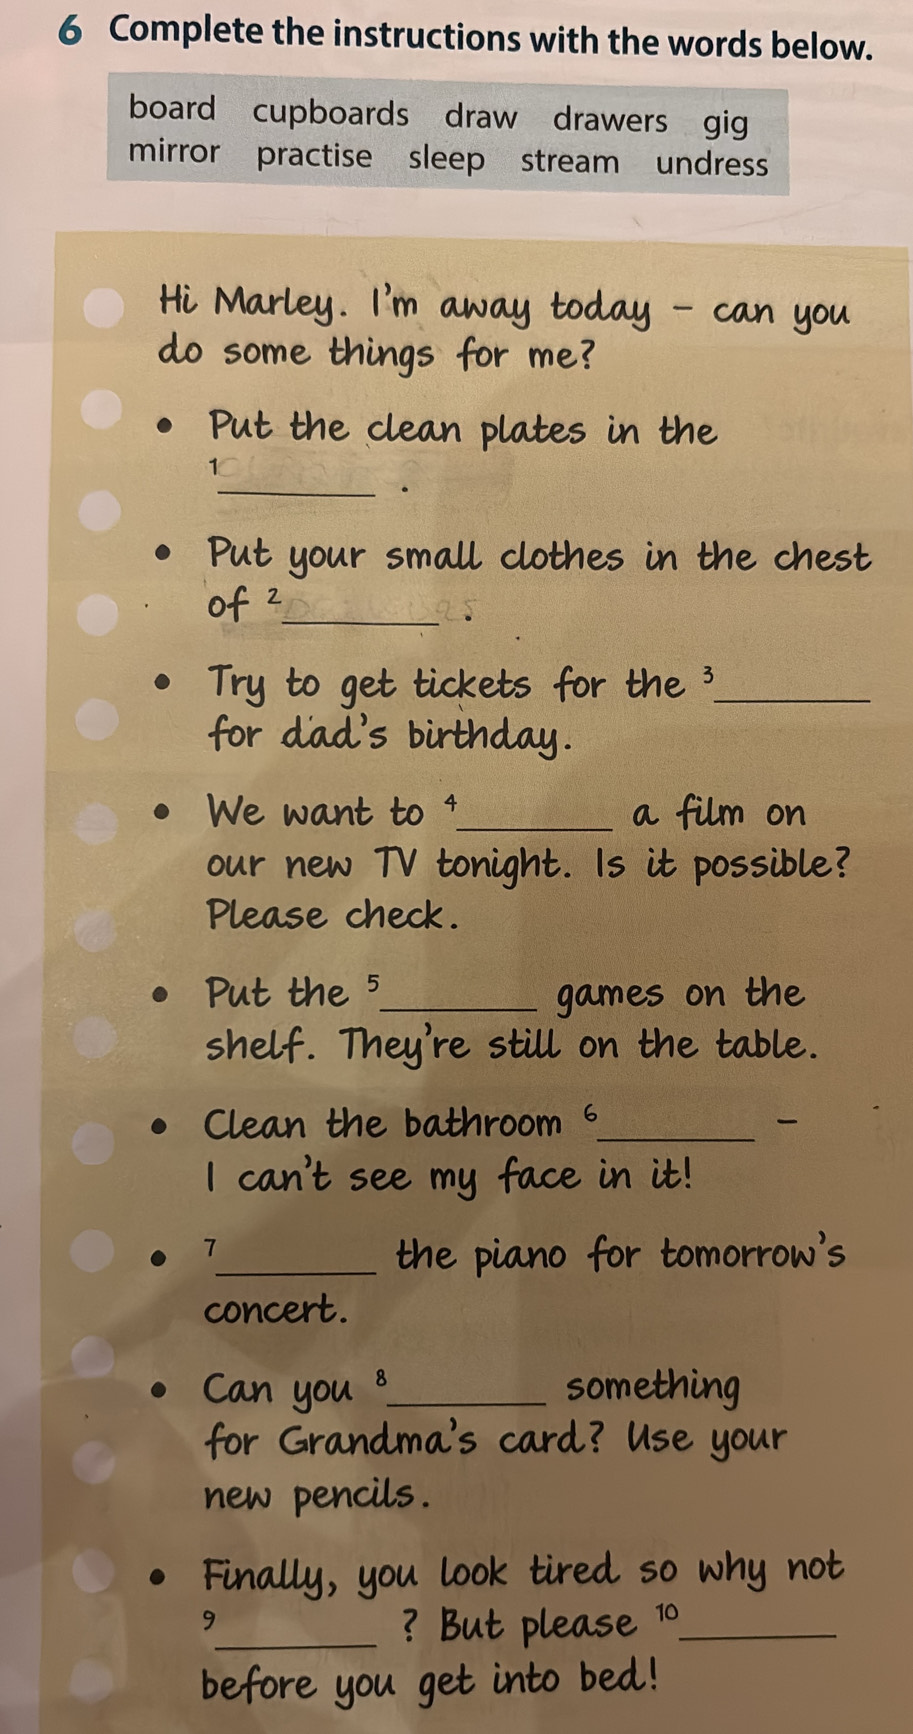 6 Complete the instructions with the words below.
board cupboards draw drawers gig
mirror practise sleep stream undress
Hi Marley. I'm away today – can you
do some things for me?
• Put the clean plates in the
1__________ .
• Put your small clothes in the chest
of 2__________ .
• Try to get tickets for the 3__________
for dad's birthday.
• We want to 4__________ a film on
our new TV tonight. Is it possible?
Please check.
• Put the 5__________ games on the
shelf. They're still on the table.
• Clean the bathroom 6__________ –
I can't see my face in it!
• 7__________ the piano for tomorrow's
concert.
• Can you 8__________ something
for Grandma's card? Use your
new pencils.
• Finally, you look tired so why not
9__________ ? But please 10__________
before you get into bed!